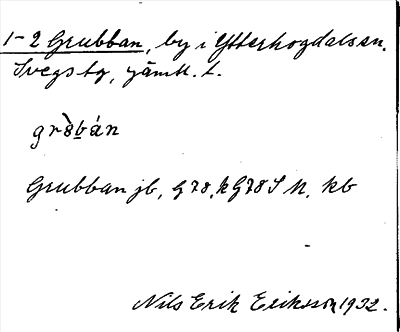 1-2 Grubban, by i Ytterhogdals sn.
Svegs tg, Jämtl. l.
grò̀bán
Grubban jb, G78, kG78 S M. kb
Nils Erik Eriksson 1932.